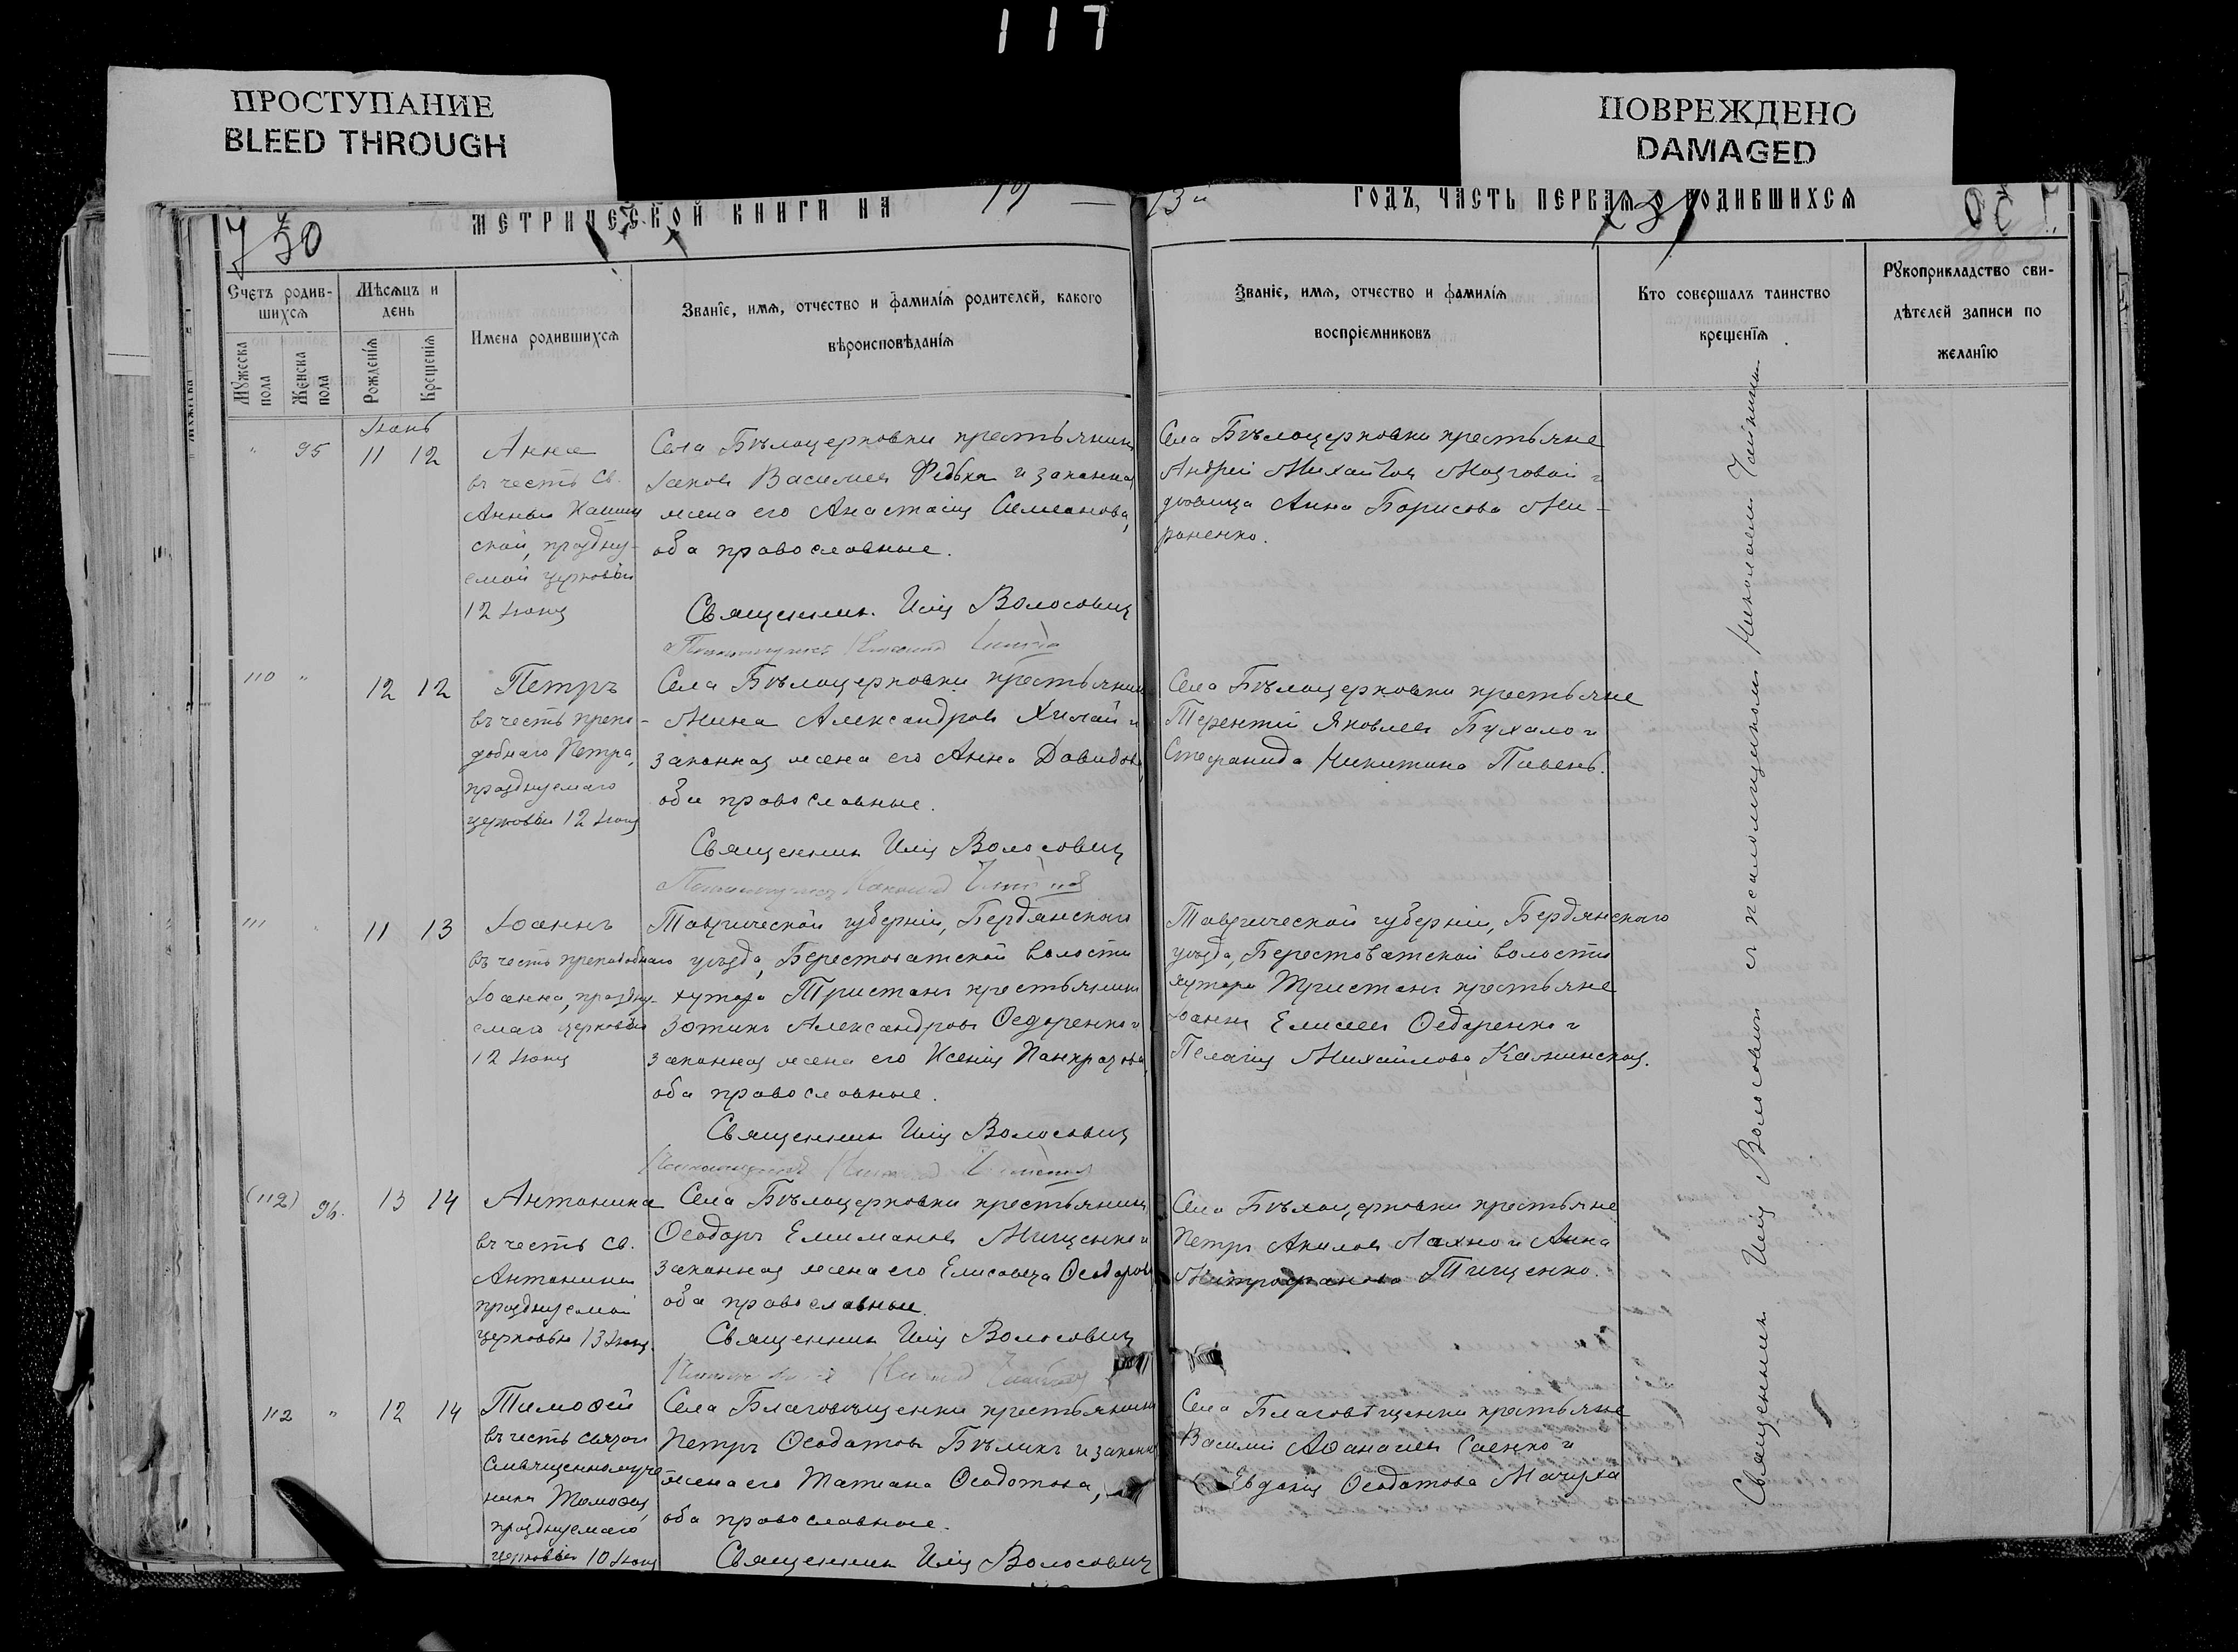 117
ПРОСТУПАНИЕ
BLEED THROUGH
ПОВРЕЖДЕНО
DAMAGED
730
МЕТРИЧЕСКОЙ КНИГИ НА 19
13й ГОДЪ, ЧАСТЬ ПЕРВАЯ О РОДИВШИХСЯ
Счетъ родившихся
Мужеска пола
Женска пола
Мѣсяцъ и день
Рожденія
Крещенія
Имена родившихся
Званіе, имя, отчество и фамилія родителей, какого
вѣроисповѣданія
Званіе, имя, отчество и фамилія
воспріемниковъ
Кто совершалъ таинство
крещенія
Рукоприкладство сви-
дѣтелей записи по
желанію
Іюнь
" 95 11 12
Анна
въ честь Св.
Анны Кашин
ской, праздну-
емой церковью
12 Іюня
Села Бѣлоцерковки крестьянинъ
Іаковъ Василіевъ Федька и законная
жена его Анастасія Симеонова,
оба православные.
Священникъ Илія Волосовичъ
Села Бѣлоцерковки крестьяне
Андрей Михаиловъ Мозговой и
дѣвица Анна Борисова Ми-
роненко.
110 " 12 12
Петръ
въ честь препо-
добнаго Петра,
празднуемаго
церковью 12 Іюня
Села Бѣлоцерковки крестьянинъ
Мина Александровъ Хилай и
законная жена его Анна Давидова,
оба православные.
Священникъ Илія Волосовичъ
Села Бѣлоцерковки крестьяне
Терентій Яковлевъ Бухало и
Стефанида Никитина Пивень.
111 " 11 13
Іоаннъ
въ честь преподобнаго
Іоанна, праздну-
емаго церковью
12 Іюня
Таврической губерніи, Бердянскаго
уѣзда, Берестоватской волости
хутора Тристанъ крестьянинъ
Зотикъ Александровъ Ѳедоренко и
законная жена его Ксенія Панкратова,
оба православные.
Священникъ Илія Волосовичъ
Таврической губерніи, Бердянскаго
уѣзда, Берестоватской волости
хутора Тристанъ крестьяне
Іоаннъ Елисеевъ Ѳедоренко и
Пелагія Михайлова Калинская.
(112) 96. 13 14
Антонина
въ честь Св.
Антонины
празднуемой
церковью 13 Іюня.
Села Бѣлоцерковки крестьянинъ
Ѳеодоръ Емилiановъ Мищенко и
законная жена его Елисавета Ѳеодорова,
оба православные.
Священникъ Илія Волосовичъ
Села Бѣлоцерковки крестьяне
Петръ Акиловъ Лахно и Анна
Митрофанова Тищенко.
112 " 12 14
Тимоѳей
въ честь святого
священномуче
ника Тимоѳея,
празднуемаго
церковью 10 Іюня
Села Благовѣщенки крестьянинъ
Петръ Ѳеодотовъ Бѣликъ и законная
жена его Татіана Ѳеодотова,
оба православные.
Священникъ Илія Волосовичъ
Села Благовѣщенки крестьяне
Василій Аѳанасіевъ Саенко и
Евдокія Ѳеодотова Мачула
Священникъ Илія Волосовичъ съ псаломщикомъ Николаемъ